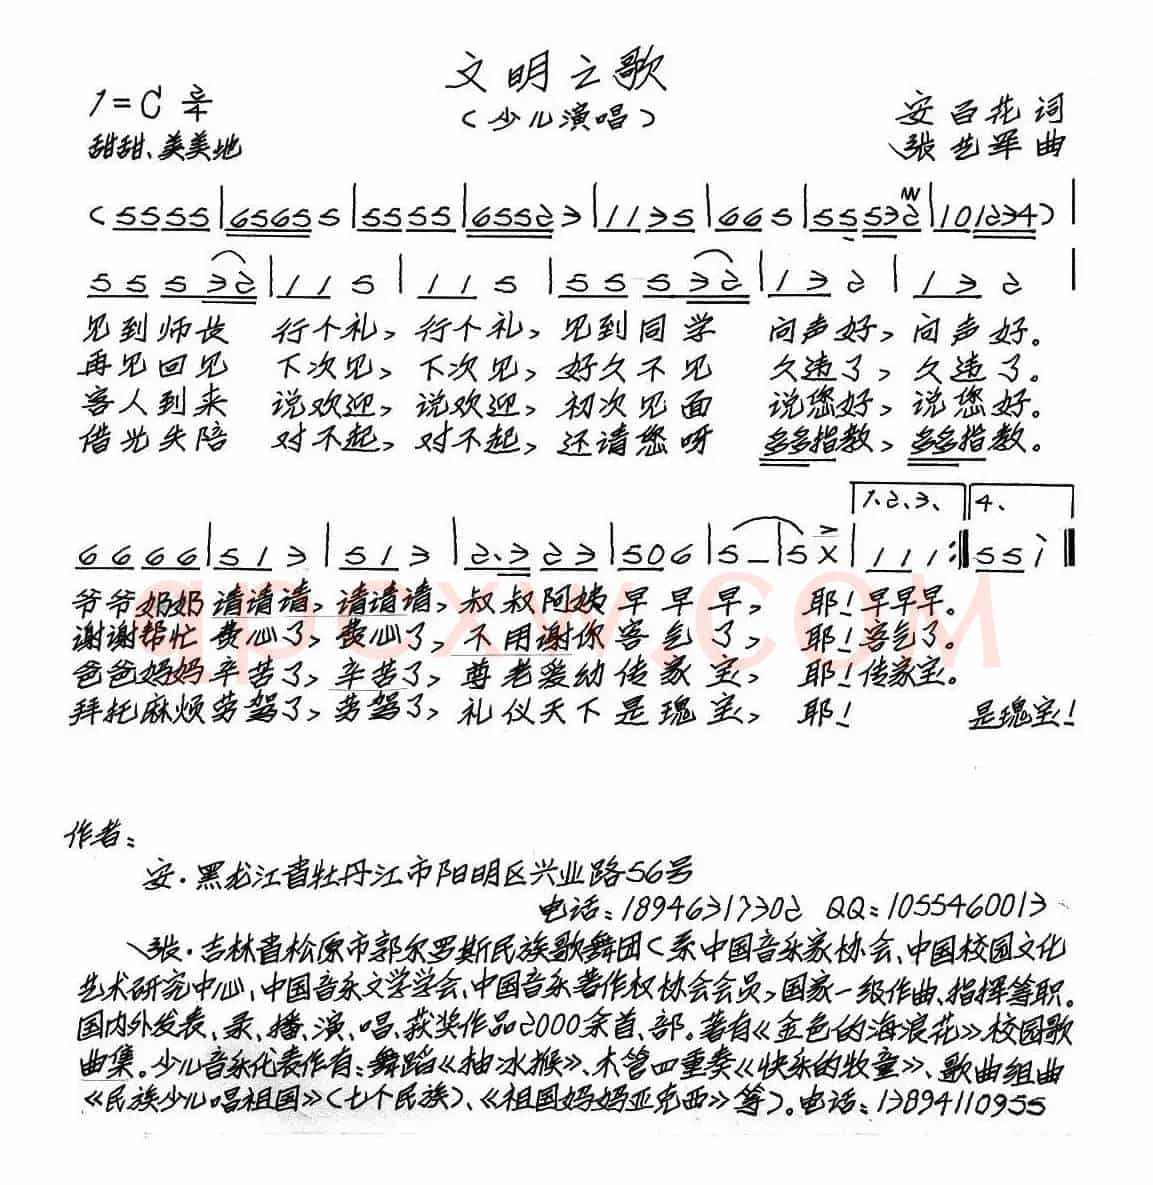 文明之歌
1=C 2/4
（少儿演唱）
安百花 词
甜甜、美美地
张艺军 曲
(5555|65655|5555|65523|1135|665|55532|101234)|
55532|115|115|55532|132|132|
见到师长 行个礼,行个礼,见到同学 问声好,问声好。
再见回见 下次见,下次见,好久不见 久违了,久违了。
客人到来 说欢迎,说欢迎,初次见面 说您好,说您好。
借光失陪 对不起,对不起,还请您呀 多多指教,多多指教。
1、2、3、 4、
6666|513|513|2·323|506|5–|5X|111:‖551‖
爷爷奶奶 请请请,请请请,叔叔阿姨早早早, 耶!早早早。
谢谢帮忙 费心了,费心了,不用谢你客气了, 耶!客气了。
爸爸妈妈辛苦了,辛苦了,尊老爱幼传家宝, 耶!传家宝。
拜托麻烦劳驾了,劳驾了,礼仪天下是瑰宝, 耶! 是瑰宝!
qpcxw.com
作者:
安·黑龙江省牡丹江市阳明区兴业路56号
电话:18946317302 QQ:1055460013
张·吉林省松原市郭尔罗斯民族歌舞团(系中国音乐家协会、中国校园文化
艺术研究中心、中国音乐文学学会、中国音乐著作权协会会员,国家一级作曲、指挥等职。
国内外发表、录、播、演、唱、获奖作品2000余首、部。著有《金色的海浪花》校园歌
曲集。少儿音乐代表作有:舞蹈《抽冰猴》、木管四重奏《快乐的牧童》、歌曲组曲
《民族少儿唱祖国》(七个民族)、《祖国妈妈亚克西》等)。电话:13894110955